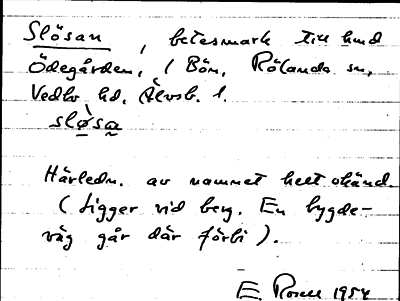 Slösan, betesmark till hmd
Ödegården, (Bön, Rölanda sn,
Vedbo hd, Älvsb. l.
slø̀sa
Härledn. av namnet helt okänd.
(Ligger vid berg. En bygde-
väg går där förbi).
E. Rosell 1954